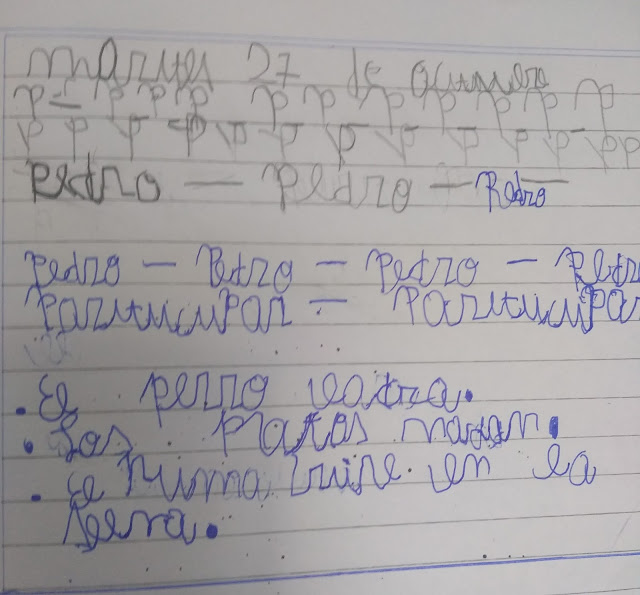 martes 27 de octubre
p - p p p p p p p p p p
p p p - p - p p p p p p - p - pp
Pedro - Pedro - Pedro
pedro - Petro - Petro - Petr
Participar - Participa
. El perro ladra.
. Los patos nadan.
. El Puma vive en la
Selva.